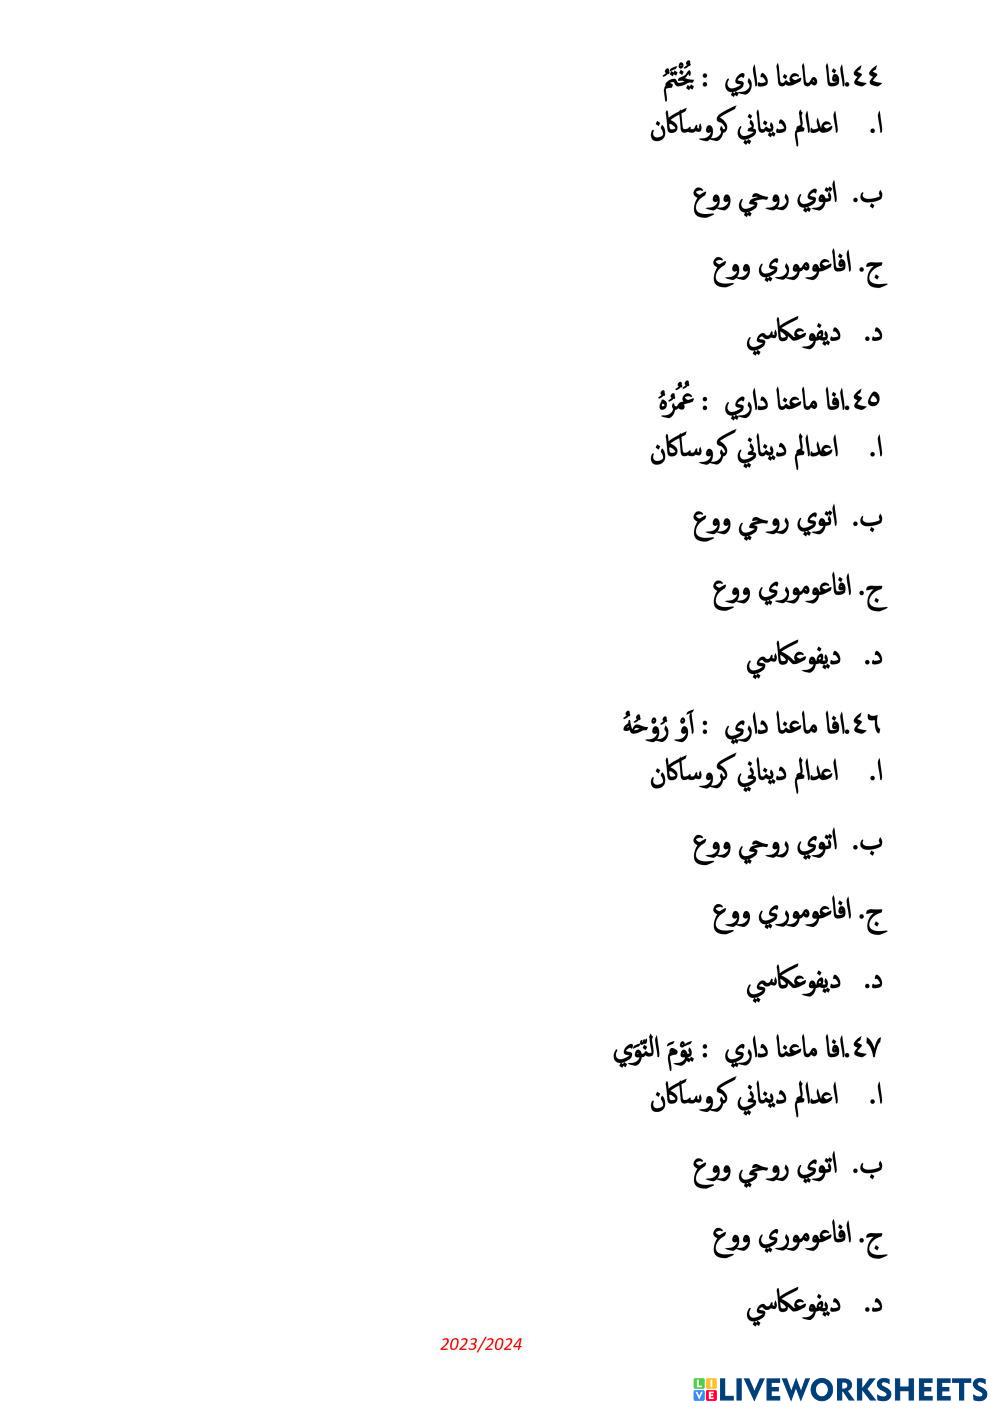 ٤٤.افا ماعنا داري : يُخْتَمُ
ا. اعدالم ديناني كروساكان
ب. اتوي روحي ووع
ج. افاعوموري ووع
د. ديفوعكاسي
٤٥.افا ماعنا داري : عُمُرُهُ
ا. اعدالم ديناني كروساكان
ب. اتوي روحي ووع
ج. افاعوموري ووع
د. ديفوعكاسي
٤٦.افا ماعنا داري : اَوْ رُوْحُهُ
ا. اعدالم ديناني كروساكان
ب. اتوي روحي ووع
ج. افاعوموري ووع
د. ديفوعكاسي
٤٧.افا ماعنا داري : يَوْمَ النَّوَي
ا. اعدالم ديناني كروساكان
ب. اتوي روحي ووع
ج. افاعوموري ووع
د. ديفوعكاسي
2023/2024
LIVE LIVEWORKSHEETS